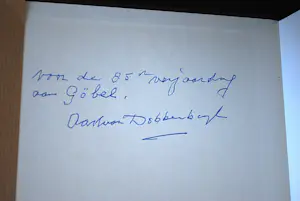 voor de 85ste verjaardag
van Göbel.
Aart van Dobbenburgh